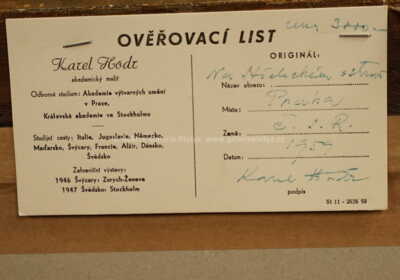 OVĚŘOVACÍ LIST
Karel Hodr
akademický malíř
Odborná studium: Akademie výtvarných umění
v Praze,
Královská akademie ve Stockholmu
Studijní cesty: Italie, Jugoslavie, Německo,
Maďarsko, Švýcary, Francie, Alžír, Dánsko,
Švédsko
Zahraniční výstavy:
1946 Švýcary: Zurych-Ženeva
1947 Švédsko: Stockholm
cena 3000
ORIGINÁL:
Na Střeleckém ostrově
Název obrazu:
Praha
Místo:
Č. S. R.
Země:
1959
Datum:
Karel Hodr
podpis
St 11 - 2626 58